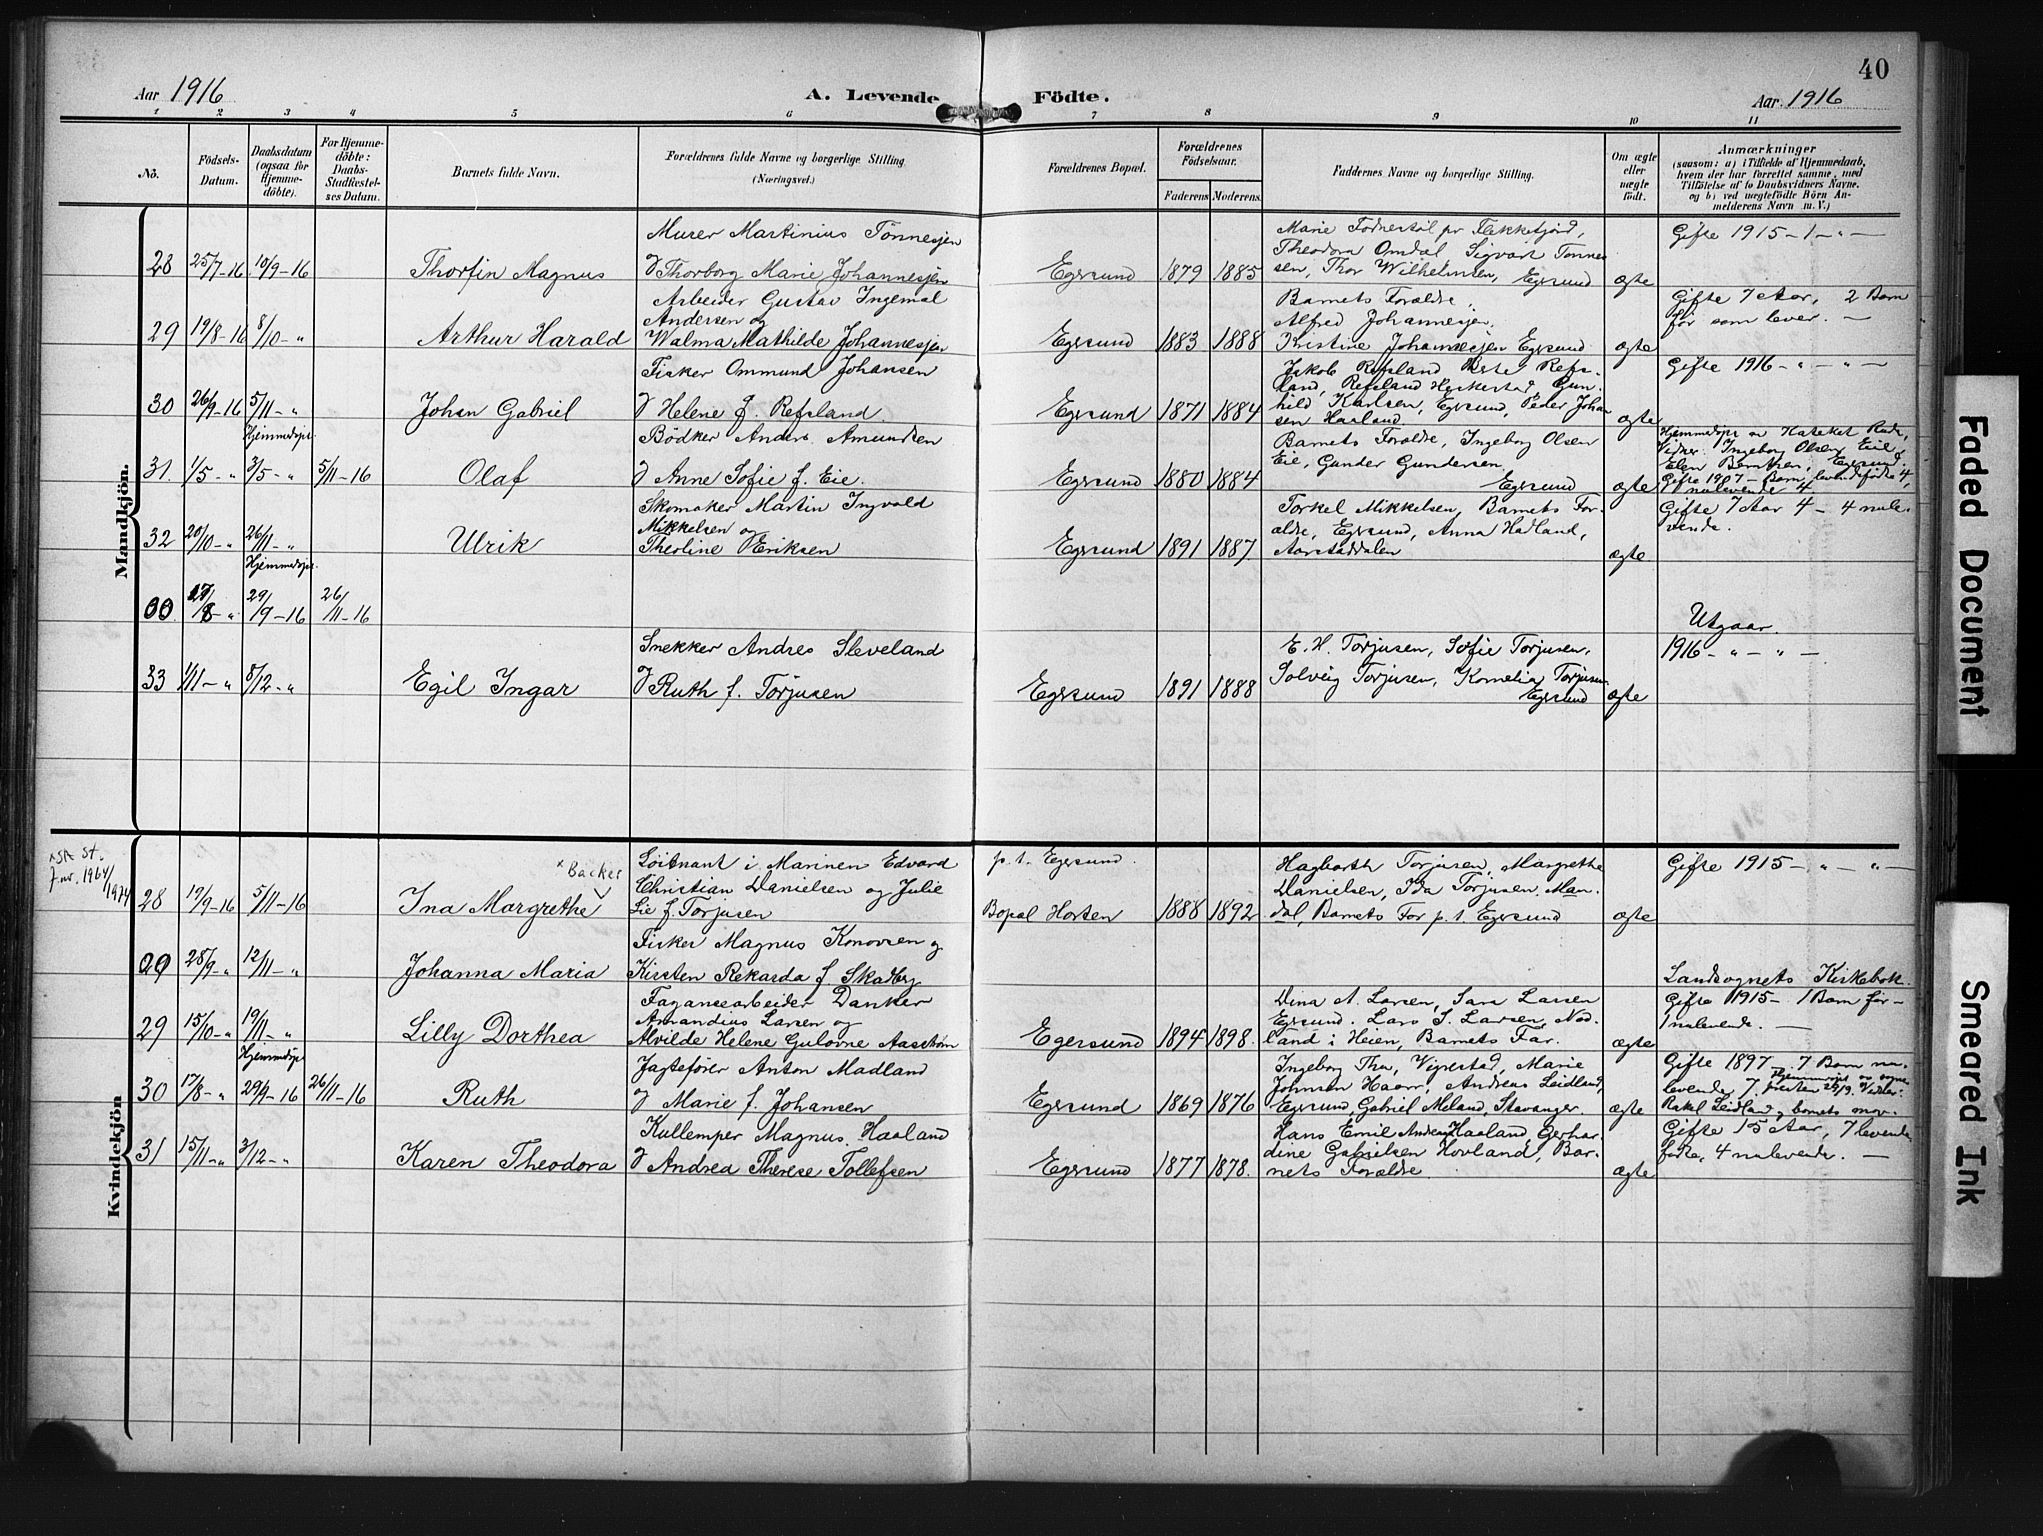 40
Aar 1916
A. Levende Födte.
Aar 1916
1 2 3 4 5 6 7 8 9 10 11
No.
Födsels-
Datum.
Daabsdatum
(ogsaa for
Hjemme-
döbte).
For Hjemme-
döbte:
Daabs-
Stadfæstel-
ses Datum.
Barnets fulde Navn.
Forældrenes fulde Navne og borgerlige Stilling
(Næringsvei.)
Forældrenes Bopæl.
Forældrenes
Födselsaar.
Faderens
Moderens
Faddernes Navne og borgerlige Stilling.
Om ægte
eller
uægte
födt.
Anmærkninger
(saasom: a) i Tilfælde af Hjemmedaab,
hvem der har forrettet samme, med
Tilföielse af to Daabsvidners Navne.
og b) ved uægtefödte Börn An-
melderens Navn m. V.)
Mandkjön.
28 25/7-16 10/9-16
Thorfin Magnus
Murer Martinius Tönnesjen
& Thorborg Marie Johannesjen
Egersund 1879 1885
Marie Fodnestöl pr Flekkefjord,
Theodora Omdal Sigvart Tönnes
sen, Thor Wilhelmsen, Egersund
ægte
Gifte 1915-1-"-
29 19/8-16 8/10-"
Arthur Harald
Arbeider Gustav Ingemal
Andersen og
Walma Mathilde Johannesjen
Egersund 1883 1888
Barnets Forældre,
Alfred Johannesjen,
Kristine Johannesjen Egersund
ægte
Gifte 7 Aar, 2 Barn
för som lever. -
30 26/9-16 5/11-"
Johan Gabriel
Fisker Ommund Johansen
& Helene f. Refsland
Egersund 1871 1884
Jakob Refsland Berte Refs-
land, Refsland Heskestad, Gun-
hild Karlsen, Egersund, Peder Johan
sen Haaland
ægte
Gifte 1916 - " - " -
31. 1/5-" Hjemmedöpt. 3/5-" 5/11-16
Olaf
Bödker Anders Amundsen
& Anne Sofie f. Eie.
Egersund 1880 1884
Barnets Forældre, Ingeborg Olsen
Eie, Gunder Gundersen
Egersund
ægte
Hjemmedöpt av Kateket Rude,
Vidner Ingeborg Olsen Eie &
Elen Berntsen, Egersund.
Gifte 1907 - Barn levendefödte 4,
nulevende 4
32 20/10-" 26/11-"
Ulrik
Skomaker Martin Ingvald
Mikkelsen og
Theoline Eriksen
Egersund 1891 1887
Torkel Mikkelsen, Barnets For-
ældre, Egersund, Anna Hadland,
Aarstaddalen
ægte
Gifte 7 Aar 4 - 4 nule-
vende.
Hjemmedöpt.
17/8-" 29/9-16 26/11-16
Utgaar.
33 1/11-" 8/12-"
Egil Ingar
Snekker Andres Sleveland
& Ruth f. Torjusen
Egersund 1891 1888
E. H. Torjusen, Sofie Torjusen,
Solveig Torjusen, Kornelia Torjusen
Egersund
ægte
1916 - " - " -
Kvindekjön
J.nr. 1964/
1974
28 19/9-16 5/11-16
× Backer
Ina Margrethe
Löitnant i Marinen Edvard
Christian Danielsen og Julie
Lie f. Torjusen
p.t. Egersund.
Bopæl Horten 1888 1892
Hagbarth Torjusen, Margrethe
Danielsen, Ida Torjusen Man-
dal, Barnets Far p.t. Egersund
ægte
Gifte 1915 - " - " -
29 28/9-" 12/11-"
Johanna Maria
Fisker Magnus Konovsen og
Kirsten Rekarda f. Skadberg
Landsognets Kirkebok.
29 15/10-" 19/11-"
Lilly Dorthea
Fayancearbeider Danker
Amandius Larsen og
Alvilde Helene Gulovne Aasström
Egersund 1894 1898
Dina A. Larsen, Sara Larsen
Egersund. Lars S. Larsen, Nod-
land i Heien, Barnets Far.
ægte
Gifte 1915 - 1 Barn för -
1 nulevende. -
30 17/8-" Hjemmedöpt 29/9-16 26/11-16
Ruth
Jagtefører Anton Madland
& Marie f. Johansen
Egersund 1869 1876
Ingeborg Thu, Vigrestad, Marie
Johnsen Haarr, Andreas Leidland,
Egersund, Gabriel Meland, Stavanger.
ægte
Gifte 1897 - 7 Barn nu-
levende 7. Hjemmedöpt av sogne-
presten 29/9. Vidner:
Rakel Leidland og barnets mor.
31 15/11-" 3/12-"
Karen Theodora
Kullemper Magnus Haaland
& Andrea Therese Tollefsen
Egersund 1877 1878.
Hans Emil Andreas Haaland, Gerhar-
dine Gabrielsen Hovland, Bar-
nets Forældre
ægte
Gifte 15 Aar, 7 levende
födte, 4 nulevende. -
Faded Document
Smeared Ink